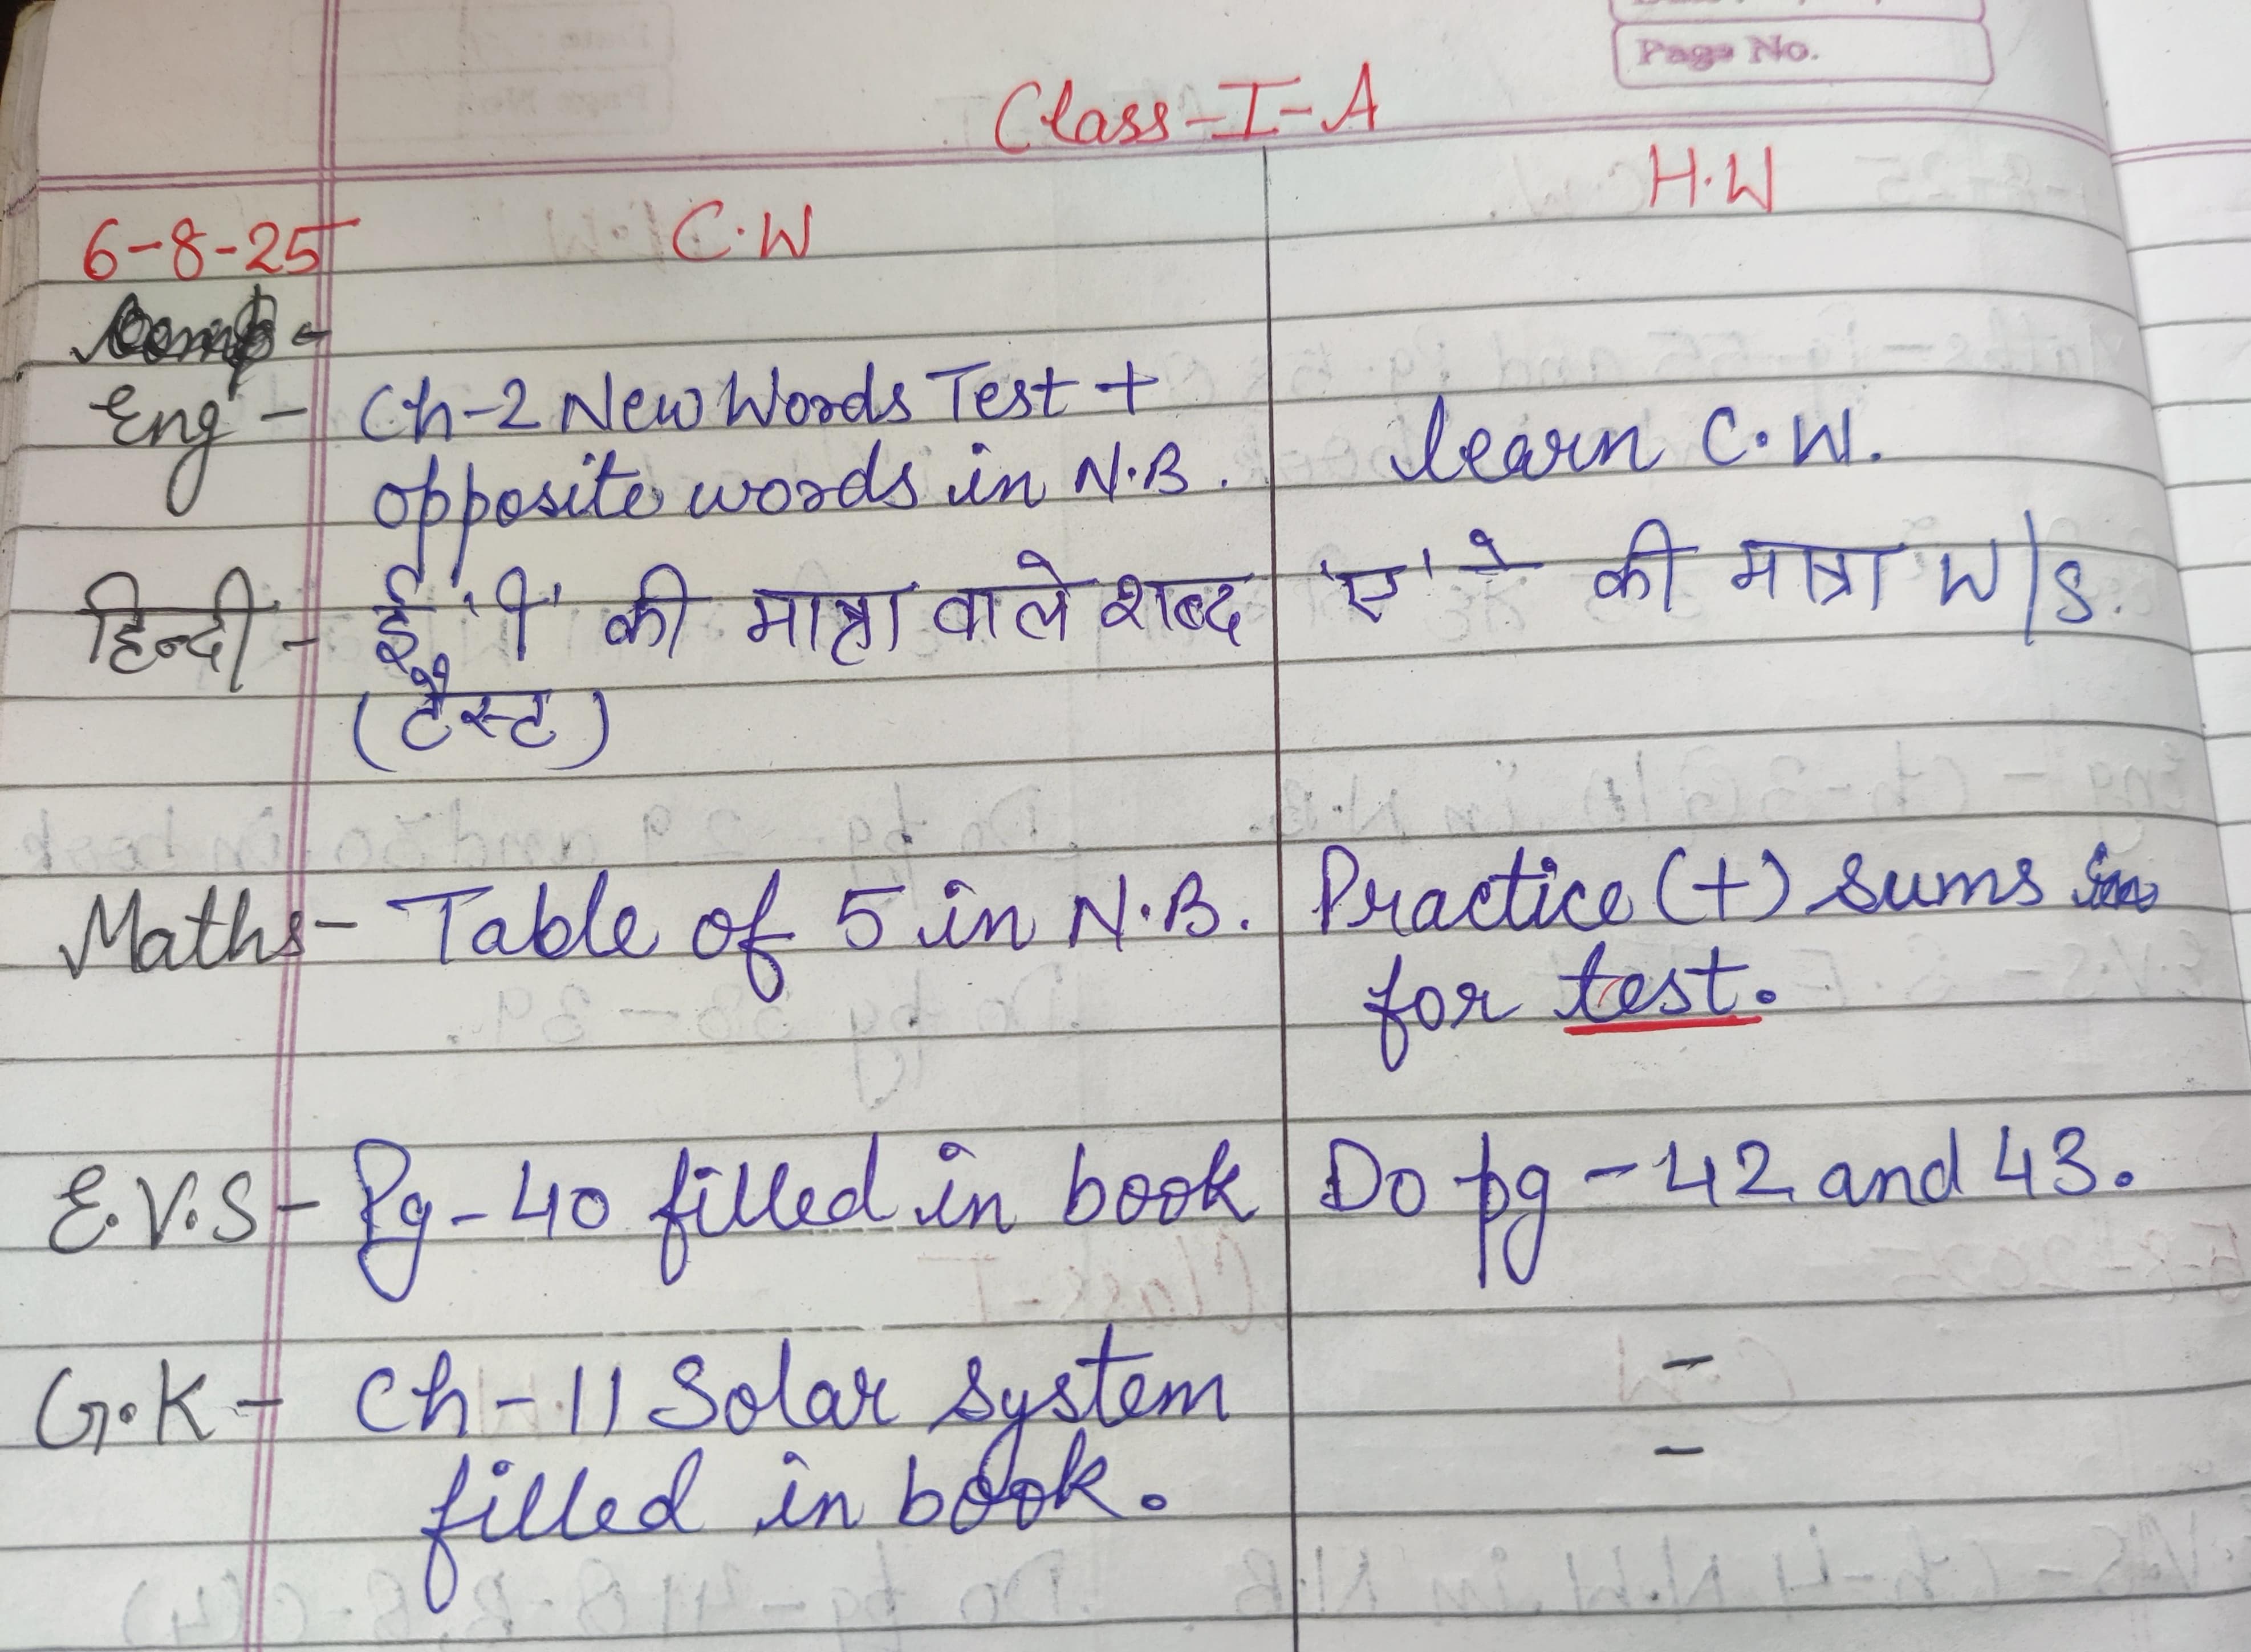 Page No.
Class-I-A
6-8-25 C.W H.W
Eng - Ch-2 New Words Test +
opposite words in N.B. learn C.W.
हिन्दी - ई 'ी' की मात्रा वाले शब्द 'ए' े की मात्रा W/S.
(टैस्ट)
Maths - Table of 5 in N.B. Practice (+) sums
for test.
E.V.S - Pg-40 filled in book Do pg - 42 and 43.
G.K - Ch - 11 Solar system -
filled in book. -